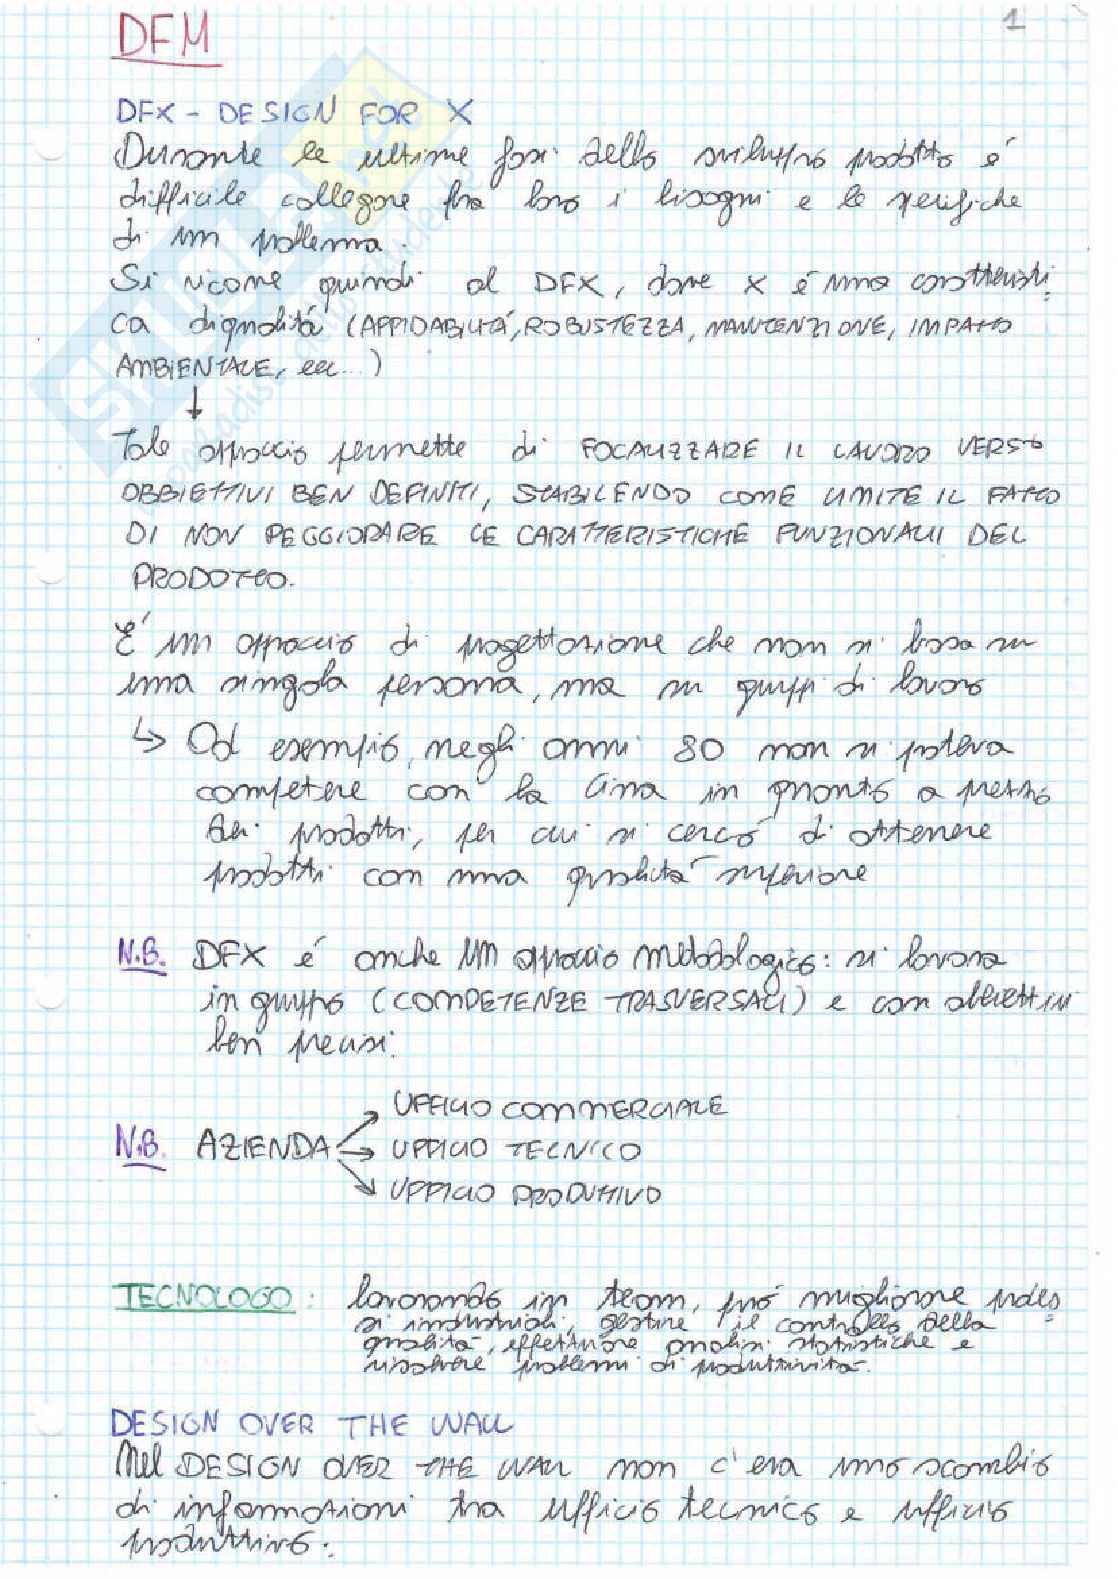 1
DFM
DFX - DESIGN FOR X
Durante le ultime fasi dello sviluppo prodotto é
difficile collegare fra loro i bisogni e le specifiche
di un problema.
Si ricorre quindi al DFX, dove X é una caratteristi-
ca di qualitá (AFFIDABILITÁ, ROBUSTEZZA, MANUTENZIONE, IMPATTO
AMBIENTALE, ecc...)
↓
Tale approccio permette di FOCALIZZARE IL LAVORO VERSO
OBBIETTIVI BEN DEFINITI, STABILENDO COME LIMITE IL FATTO
DI NON PEGGIORARE LE CARATTERISTICHE FUNZIONALI DEL
PRODOTTO.
É un approccio di progettazione che non si basa su
una singola persona, ma su gruppi di lavoro
↳ Ad esempio, negli anni 80 non si poteva
competere con la Cina in quanto a prezzo
dei prodotti, per cui si cercó di ottenere
prodotti con una qualitá superiore
N.B. DFX é anche un approccio metodologico: si lavora
in gruppo (COMPETENZE TRASVERSALI) e con obbiettivi
ben precisi.
UFFICIO COMMERCIALE
N.B. AZIENDA → UFFICIO TECNICO
UFFICIO PRODUTTIVO
TECNOLOGO: lavorando in team, puó migliorare proces-
si industriali, gestire il controllo della
qualitá, effettuare analisi statistiche e
risolvere problemi di produttivitá.
DESIGN OVER THE WALL
Nel DESIGN OVER THE WALL non c'era uno scambio
di informazioni tra ufficio tecnico e ufficio
produttivo.